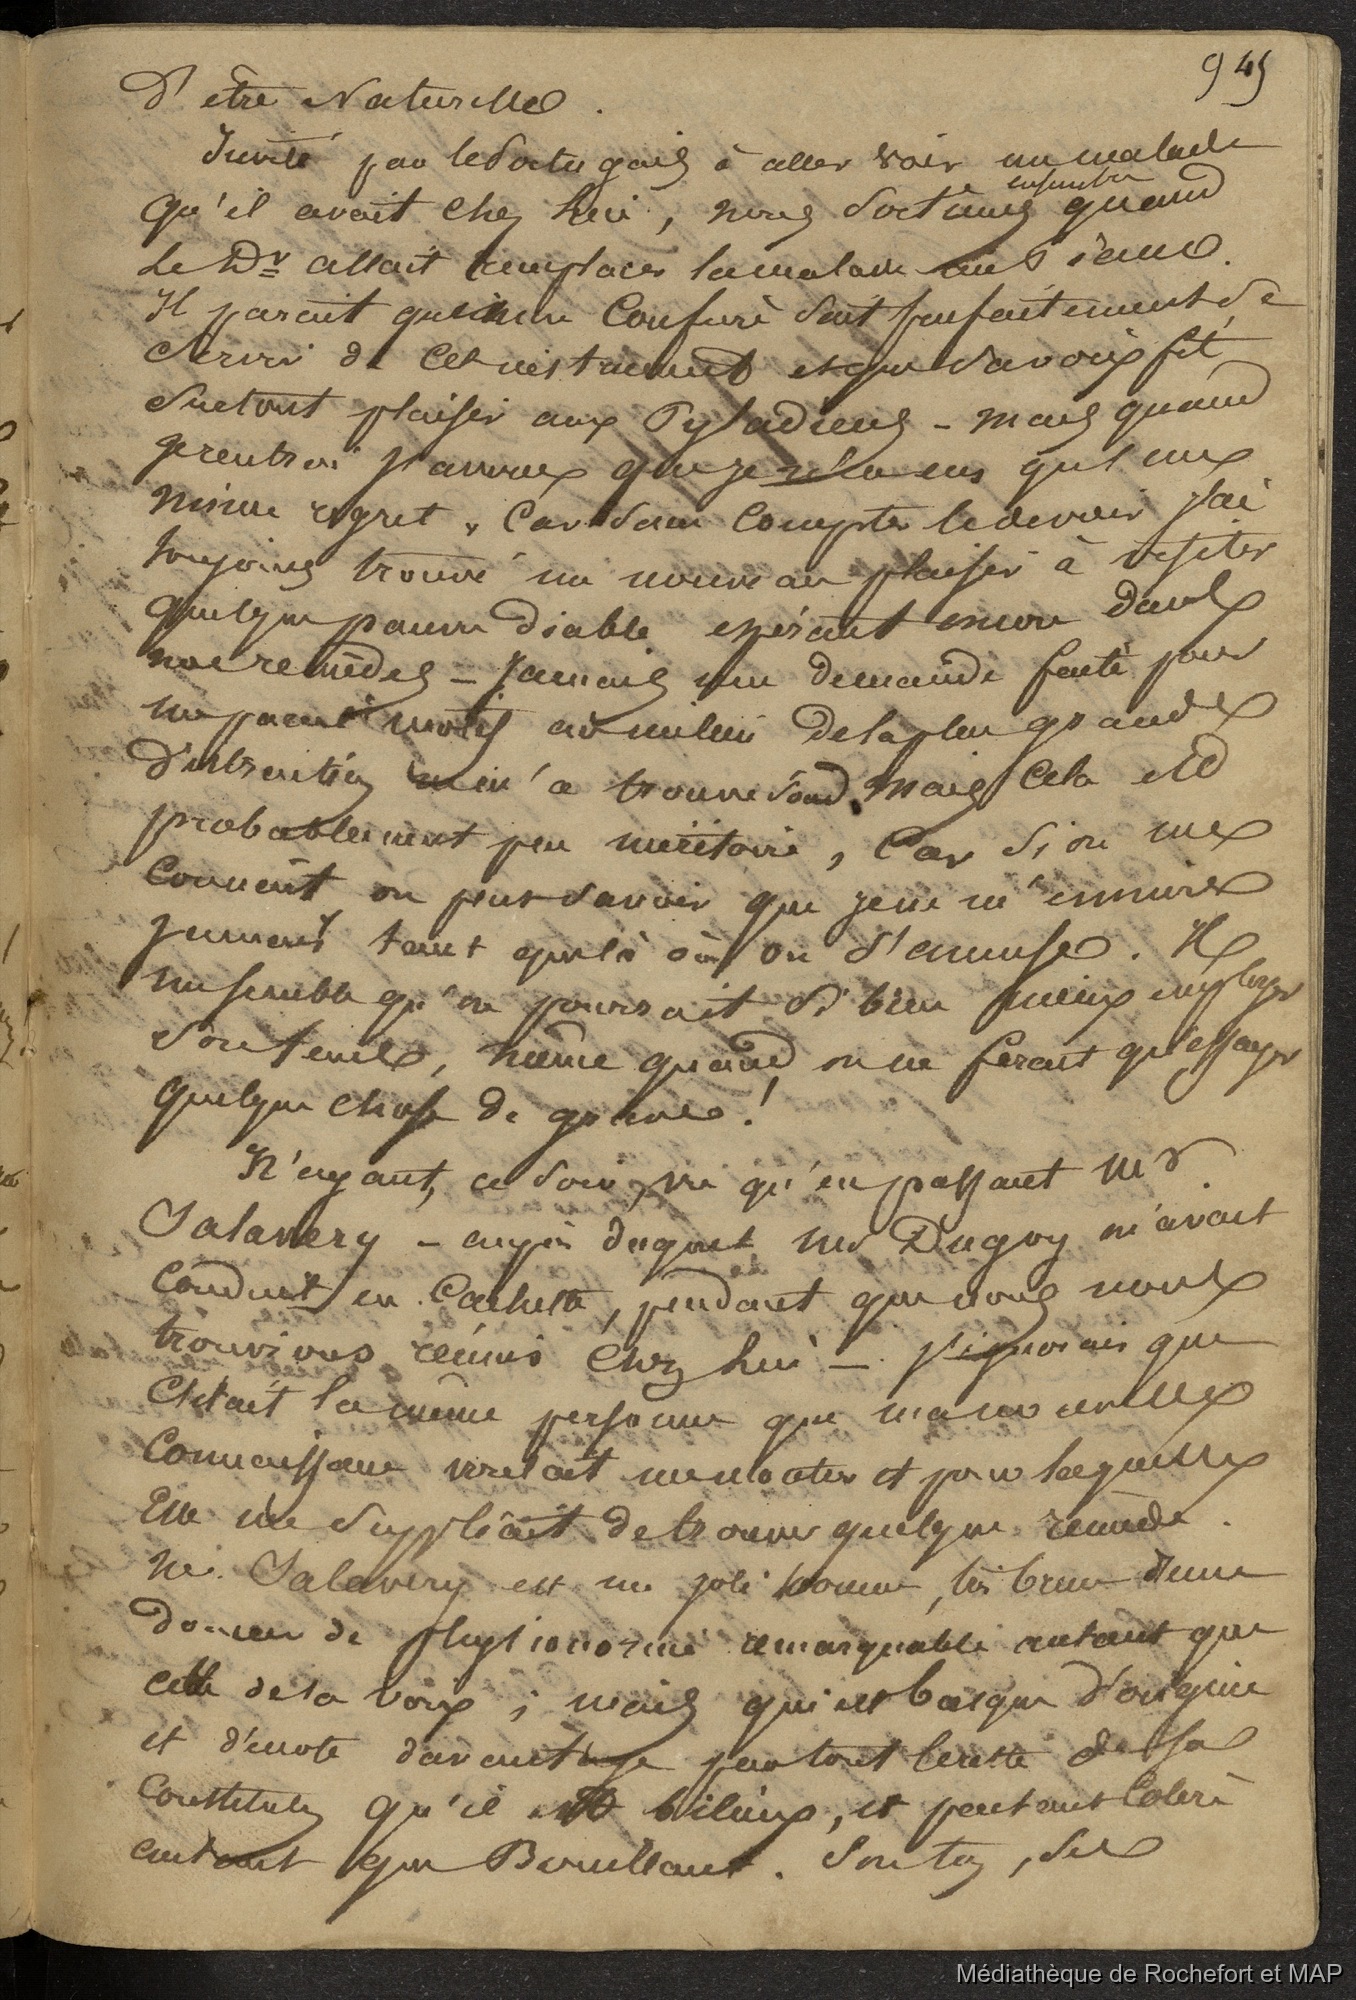 945
d'être Naturelle.
Invité par le Portugais à aller voir un malade
qu'il avait chez lui, nous sortimes ensemble quand
le Dr allait remplacer la malade au Piano.
Il parait que mon Confrère sait parfaitement se
servir de cet instrument et que sa voix fit
surtout plaisir aux - mais quand
je rentrai j'avoue que je n'en eus qu'une
mince regret, Car sans compter le devoir j'ai
toujours trouvé un nouveau plaisir à visiter
quelque pauvre diable espérant encore dans
nos remèdes - Jamais une demande faite pour
un pareil motif au milieu de la plus grande
distraction ne m'a trouvé sourd, mais cela est
probablement peu méritoire, Car si on me
connait on peut savoir que je ne m'ennuie
jamais tant que là où on s'amuse. Il
me semble qu'on pourrait si bien mieux employer
son temps, même quand on ne ferait qu'essayer
quelque chose de grave!
N'ayant, ce soir, vu qu'en passant Mr
Salavery - auprès duquel Mr Duguy m'avait
conduit en Cachette, pendant que nous nous
trouvions réunis chez lui - j'ignorais que
C'était la même personne que ma nouvelle
connaissance voulait me montrer et pour laquelle
Elle me suppliait de trouver quelque remède.
Mr. Salavery est un joli homme, très brun d'une
douceur de physionomie remarquable autant que
celle de sa voix; mais qui est basque d'origine
et dénote davantage par tout le reste de sa
Constitution qu'il est bilieux, et partant Colère
autant que Bouillant. Son ton, ses
Médiathèque de Rochefort et MAP